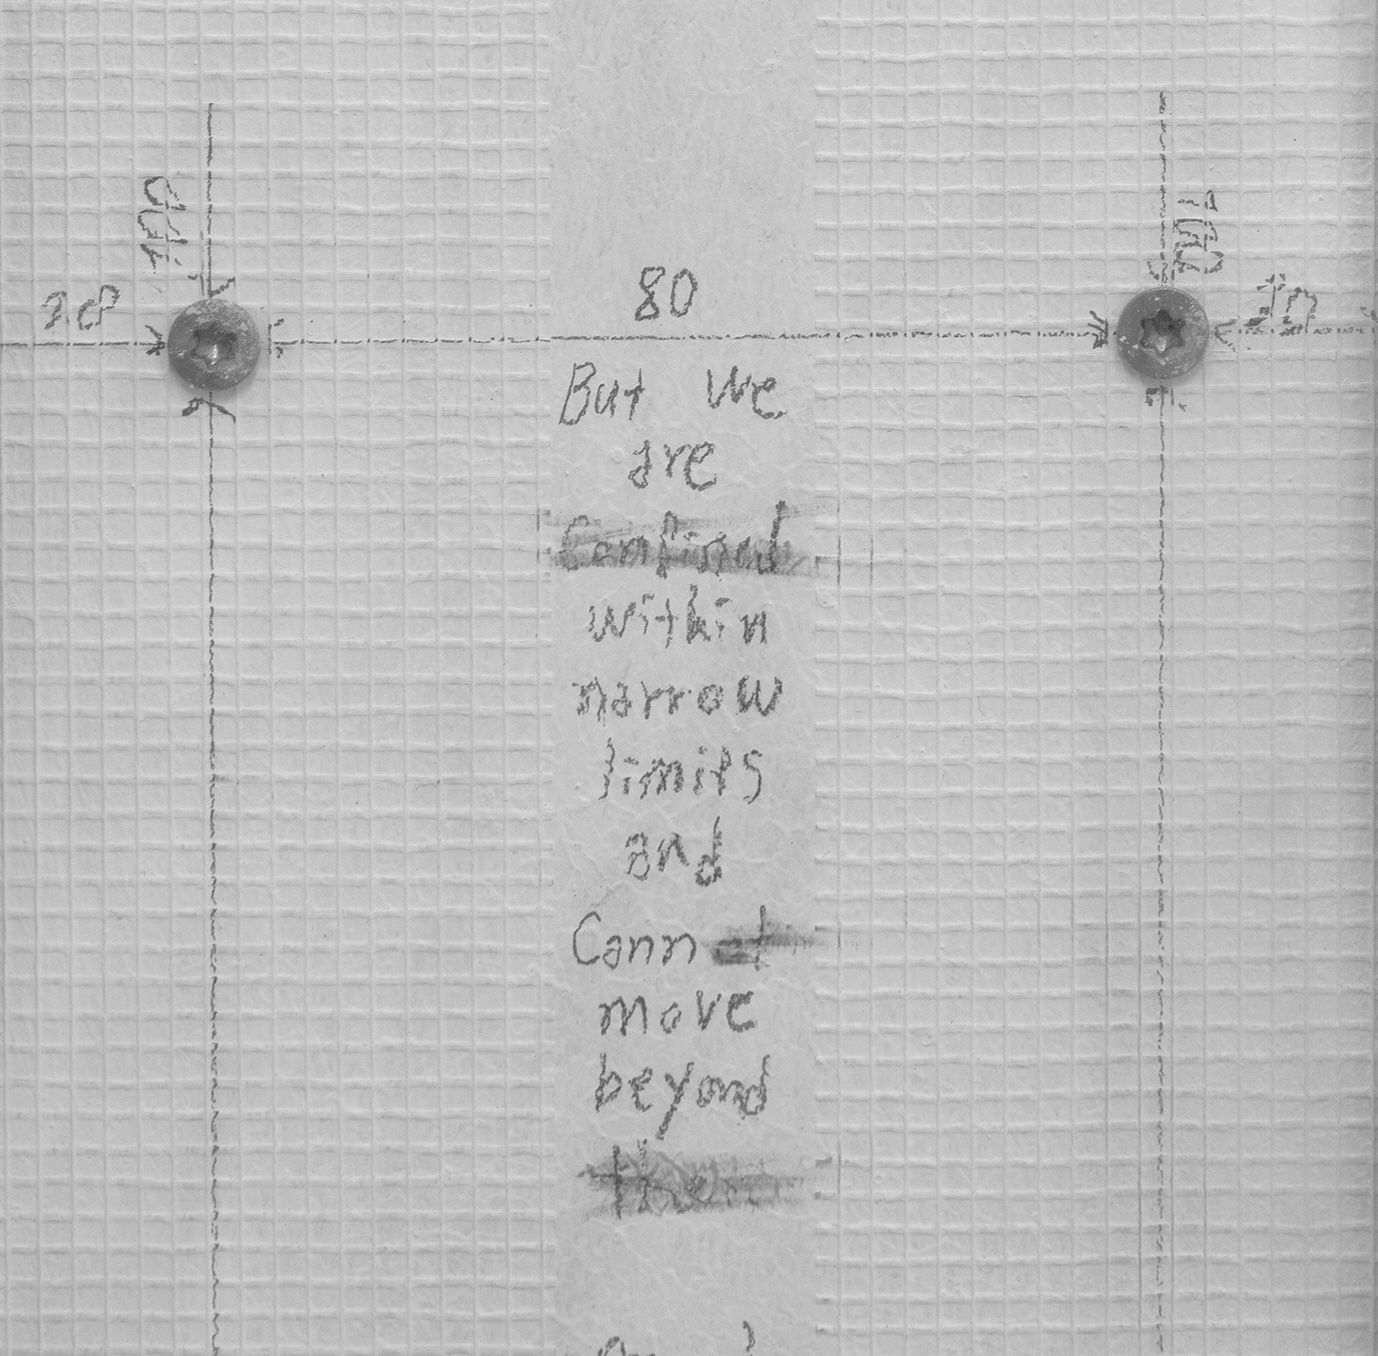 80
But we
are
Confined
within
narrow
limits
and
Cannot
move
beyond
them